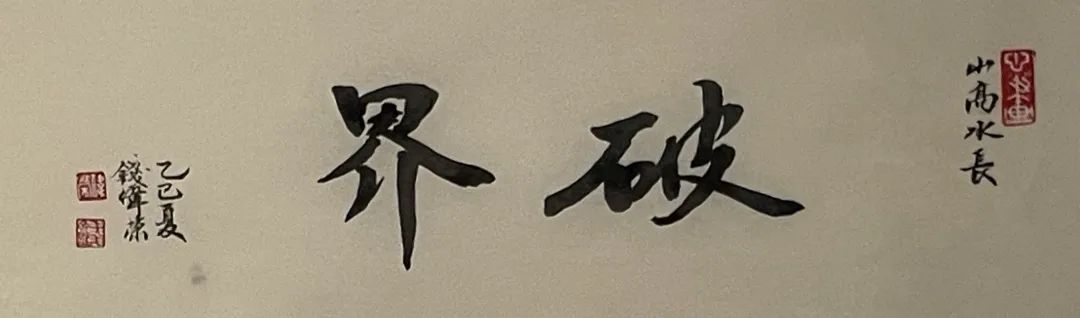 山高水長
破界
乙巳夏
錢偉榮